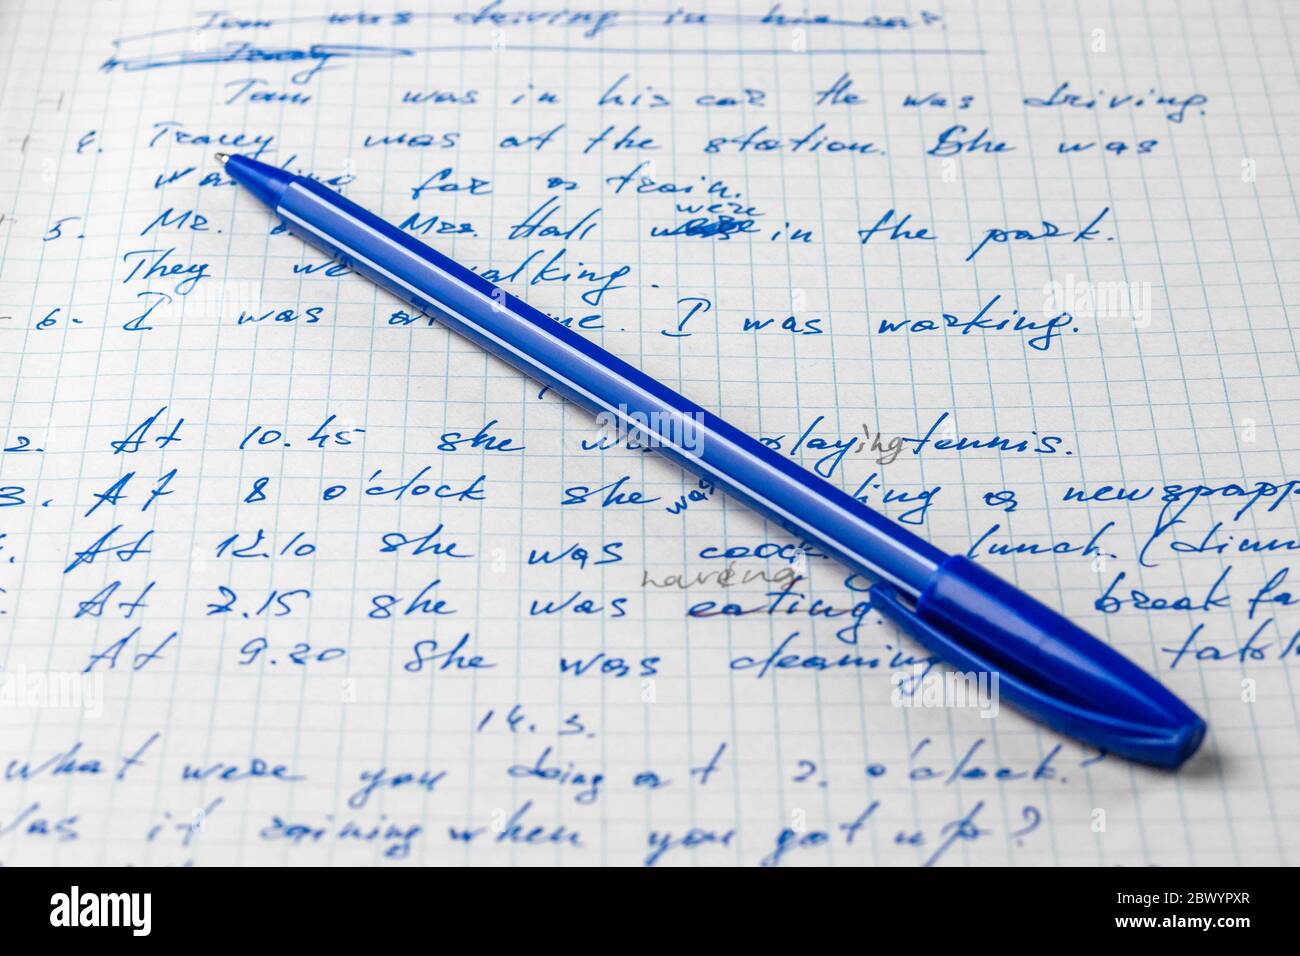 Tom was driving in his car.
Tracey
Tom was in his car He was driving.
4. Tracey was at the station. She was
for a train.
were
5. Mr. Mrs. Hall in the park.
They walking.
6. I was I was working.
2. At 10.45 she playing tennis.
3. At 8 o'clock she was a newspapp
At 12.10 she was lunch. (dinn
having
At 2.15 she was eating. breakfa
At 9.20 she was cleaning
14. 3.
What were you doing at 2. o'clock.?
Was it raining when you got up?
alamy
alamy
Image ID: 2BWYPXR
www.alamy.com